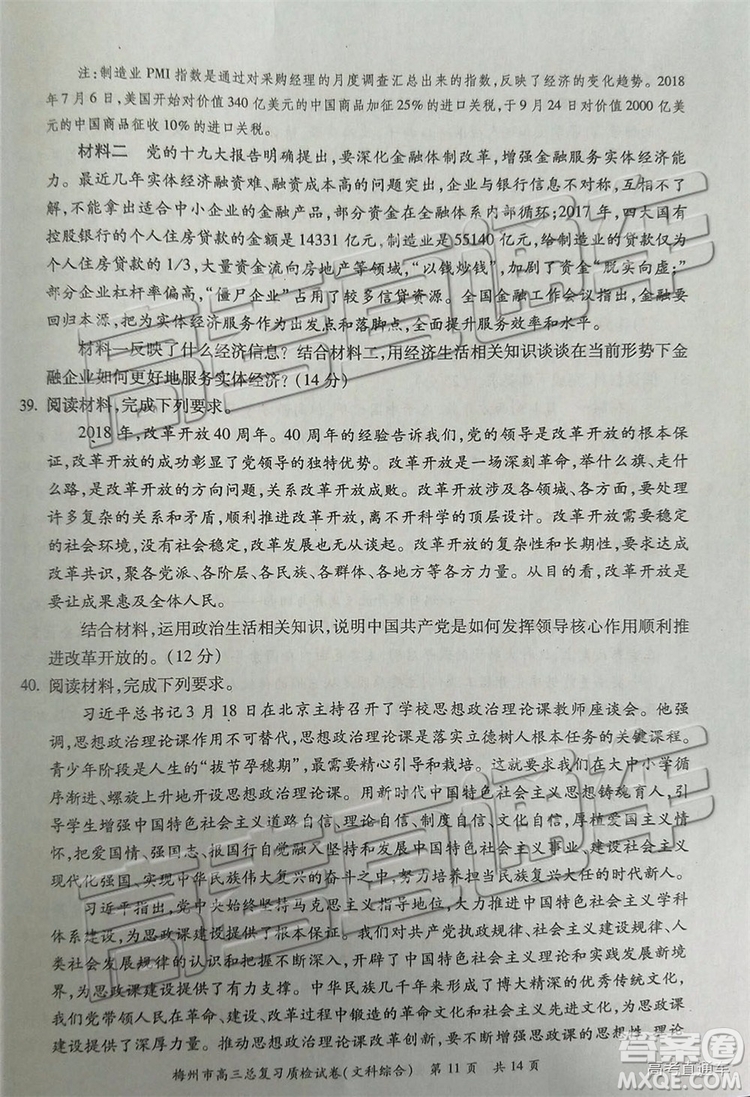 注:制造业 PMI 指数是通过对采购经理的月度调查汇总出来的指数,反映了经济的变化趋势。2018
年7月6日,美国开始对价值340亿美元的中国商品加征25%的进口关税,于9月24日对价值2000亿美
元的中国商品征收10%的进口关税。
材料二 党的十九大报告明确提出,要深化金融体制改革,增强金融服务实体经济能
力。最近几年实体经济融资难、融资成本高的问题突出,企业与银行信息不对称、互相不了
解,不能拿出适合中小企业的金融产品,部分资金在金融体系内部循环;2017年,四大国有
控股银行的个人住房贷款的金额是14331亿元,制造业是55140亿元,给制造业的贷款仅为
个人住房贷款的1/3,大量资金流向房地产等领域,“以钱炒钱”,加剧了资金“脱实向虚;”
部分企业杠杆率偏高,“僵尸企业”占用了较多信贷资源。全国金融工作会议指出,金融要
回归本源,把为实体经济服务作为出发点和落脚点,全面提升服务效率和水平。
材料一反映了什么经济信息?结合材料二,用经济生活相关知识谈谈在当前形势下金
融企业如何更好地服务实体经济?(14分)
39. 阅读材料,完成下列要求。
2018年,改革开放40周年。40周年的经验告诉我们,党的领导是改革开放的根本保
证,改革开放的成功彰显了党领导的独特优势。改革开放是一场深刻革命,举什么旗、走什
么路,是改革开放的方向问题,关系改革开放成败。改革开放涉及各领域、各方面,要处理
许多复杂的关系和矛盾,顺利推进改革开放,离不开科学的顶层设计。改革开放需要稳定
的社会环境,没有社会稳定,改革发展也无从谈起。改革开放的复杂性和长期性,要求达成
改革共识,聚各党派、各阶层、各民族、各群体、各地方等各方力量。改革的目的看,改革开
放要让成果惠及全体人民。
结合材料,运用政治生活相关知识,说明中国共产党是如何发挥领导核心作用顺利推
进改革开放的。(12分)
40. 阅读材料,完成下列要求。
习近平总书记3月18日在北京主持召开了学校思想政治理论课教师座谈会。他强
调,思想政治理论课作用不可替代,思想政治理论课是落实立德树人根本任务的关键课程。
青少年阶段是人生的“拔节孕穗期”,最需要精心引导和栽培。这就要求我们在大中小学循
序渐进、螺旋上升地开设思想政治理论课。用新时代中国特色社会主义思想铸魂育人,引
导学生增强中国特色社会主义道路自信、理论自信、制度自信、文化自信,厚植爱国主义情
怀,把爱国情、强国志、报国行自觉融入坚持和发展中国特色社会主义事业、建设社会主义
现代化强国、实现中华民族伟大复兴的奋斗之中,努力培养担当民族复兴大任的时代新人。
习近平指出,党中央始终坚持马克思主义指导地位,大力推进中国特色社会主义学科
体系建设,为思政课建设提供了根本保证。我们对共产党执政规律、社会主义建设规律、人
类社会发展规律的认识和把握不断深入,开辟了中国特色社会主义理论和实践发展新境
界,为思政课建设提供了有力支撑。中华民族几千年来形成了博大精深的优秀传统文化,
我们党带领人民在革命、建设、改革过程中锻造的革命文化和社会主义先进文化,为思政课
建设提供了深厚力量。推动思想政治理论课改革创新,要不断增强思政课的思想性、理论
梅州市高三总复习质检试卷(文科综合) 第11页 共14页
高考直通车
高考直通车
高考直通车
答案圈